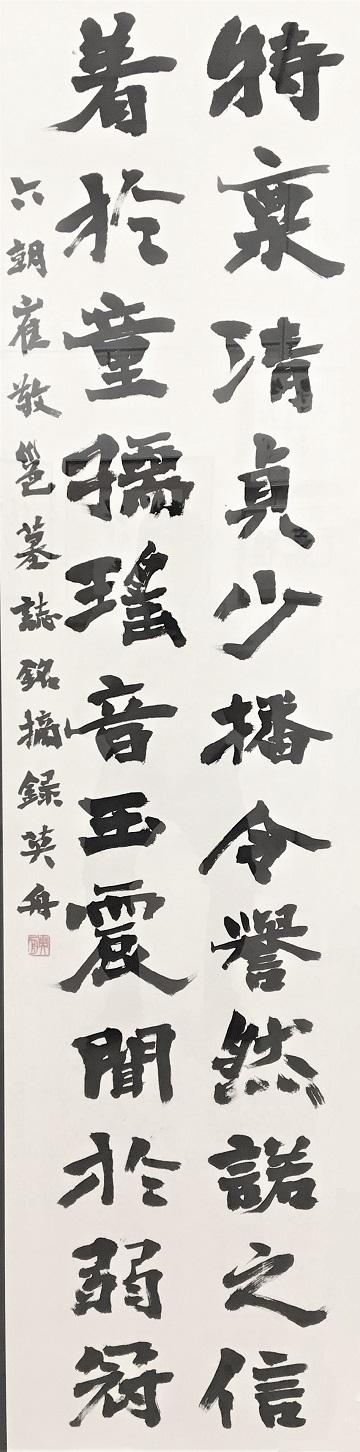 特稟清貞少播令譽然諾之信
着於童孺瑤音玉震聞於弱冠
六朝崔敬邕墓誌銘摘録英舟